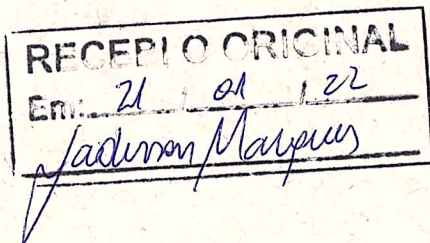 RECEBI O ORIGINAL
Em: 21 / 01 / 22
Jaderson Marques